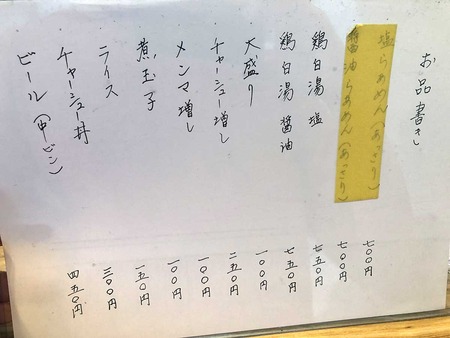 お品書き
塩らあめん(あっさり) 七〇〇円
醤油らあめん(あっさり) 七〇〇円
鶏白湯 塩 七五〇円
鶏白湯 醤油 七五〇円
大盛り 一〇〇円
チャーシュー増し 二五〇円
メンマ増し 一〇〇円
煮玉子 一〇〇円
ライス 一五〇円
チャーシュー丼 三〇〇円
ビール(中ビン) 四五〇円